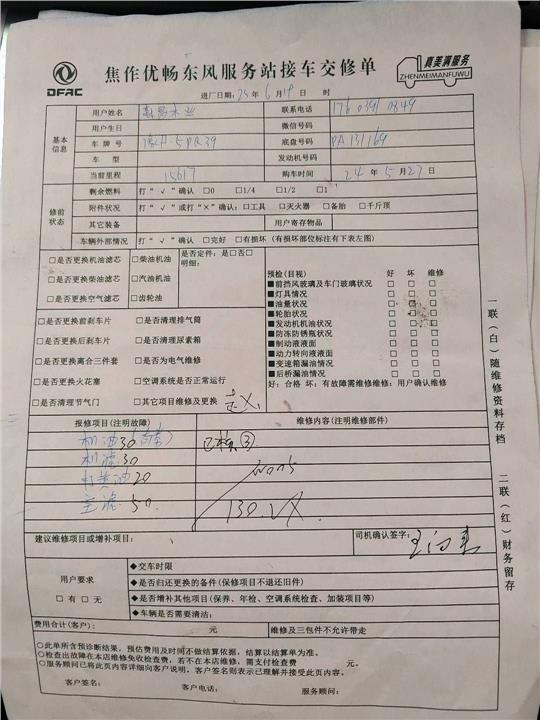 DFAC
焦作优畅东风服务站接车交修单
真美满服务
ZHENMEIMANFUWU
进厂日期: 25 年 6 月 19 日 时
基本信息
用户姓名
联系电话 176 0391 0849
用户生日
微信号码
车 牌 号
底盘号码 PA131169
车 型
发动机号码
当前里程 15617
购车时间 24 年 5 月 27 日
修前状态
剩余燃料 打“√”确认 □0 □1/4 □1/2 □1
附件状况 打“√”或打“×”确认:□工具 □灭火器 □备胎 □千斤顶
其它装备
用户寄存物品
车辆外部情况 打“√”确认 □完好 □有损坏(有损坏部位标注有下表左图)
□是否更换机油滤芯 □柴油机油 是否定件:是□否□
明细:
□是否更换柴油滤芯 □汽油机油
□是否更换空气滤芯 □齿轮油
预检(目视) 好 坏 维修
■前挡风玻璃及车门玻璃状况 □ □ □
■灯具情况 □ □ □
■油量状况 □ □ □
■轮胎状况 □ □ □
■发动机机油状况 □ □ □
■防冻防锈瓶状况 □ □ □
■制动液液面 □ □ □
■动力转向液液面 □ □ □
■变速箱漏油情况 □ □ □
■后桥漏油情况 □ □ □
好:合格 坏:有故障需维修维修:用户确认维修
□是否更换前刹车片 □是否清理排气筒
□是否更换后刹车片 □是否清理尿素箱
□是否更换离合三件套 □是否为电气维修
□是否更换火花塞 □空调系统是否正常运行
□是否清理节气门 □其它项目维修及更换
报修项目(注明故障)
维修内容(注明维修部件)
机油30
机滤30
打黄油20
主滤50
130.
建议维修项目或增补项目:
司机确认签字:
用户要求
□有 □无
◆交车时限
◆是否归还更换的备件(保修项目不退还旧件)
◆是否增补其他项目(保养、年检、空调系统检查、加装项目等)
◆车辆是否需要清洁:
费用合计(客户): 元
维修及三包件不允许带走
○此单所含预诊断结果,预估费用及时间不做结算依据,结算以结算单为准。
○检查出故障在本店维修免收检查费,若不在本店维修,需支付检查费 元。
○服务顾问已将此页内容详细向客户说明,客户签名则表示已理解并接受此页内容。
客户签名: 客户电话: 服务顾问:
一联(白)随维修资料存档
二联(红)财务留存